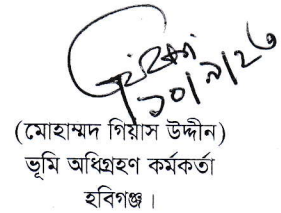 ১০/৯/২৩
(মোহাম্মদ গিয়াস উদ্দীন)
ভূমি অধিগ্রহণ কর্মকর্তা
হবিগঞ্জ।